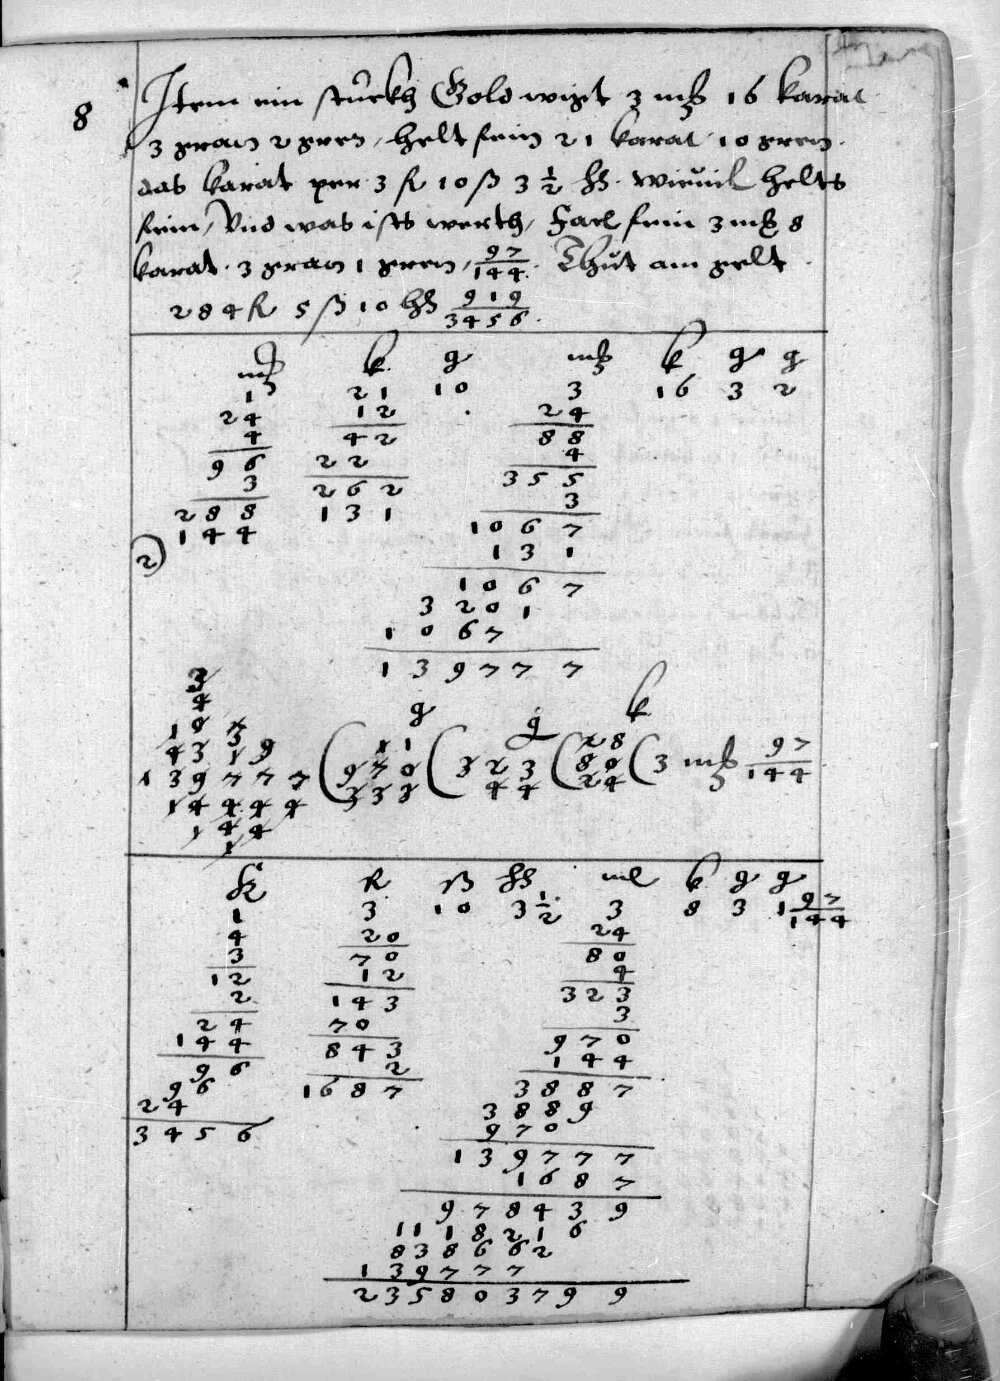 8 Item ein stuckh Gold wigt 3 mß 16 karat
3 gran 2 gren, helt fein 21 karat 10 gren.
das karat per 3 R 10 ß 3 1/2 hß. wieuil helts
fein, Vnd was ists werth, Facl fein 3 mß 8
karat. 3 gran 1 gren, 97/144. Thut am gelt
284 R 5 ß 10 hß 919/3456.
mß k g mß k g g
1 21 10 3 16 3 2
24 12 24
4 42 88
96 22 4
3 262 355
288 131 3
144 1067
2) 131
1067
3201
1067
139777
g g k
139777 ( 970 ( 323 ( 80 ( 3 mß 97/144
14444 333 44 24
144
1
K R ß hß ml k g g
1 3 10 3 1/2 3 8 3 1 97/144
4 20 24
3 70 80
12 12 4
2 143 323
24 70 3
144 843 970
96 2 144
96 1687 3887
24 3889
3456 970
139777
1687
978439
1118216
838662
139777
235803799